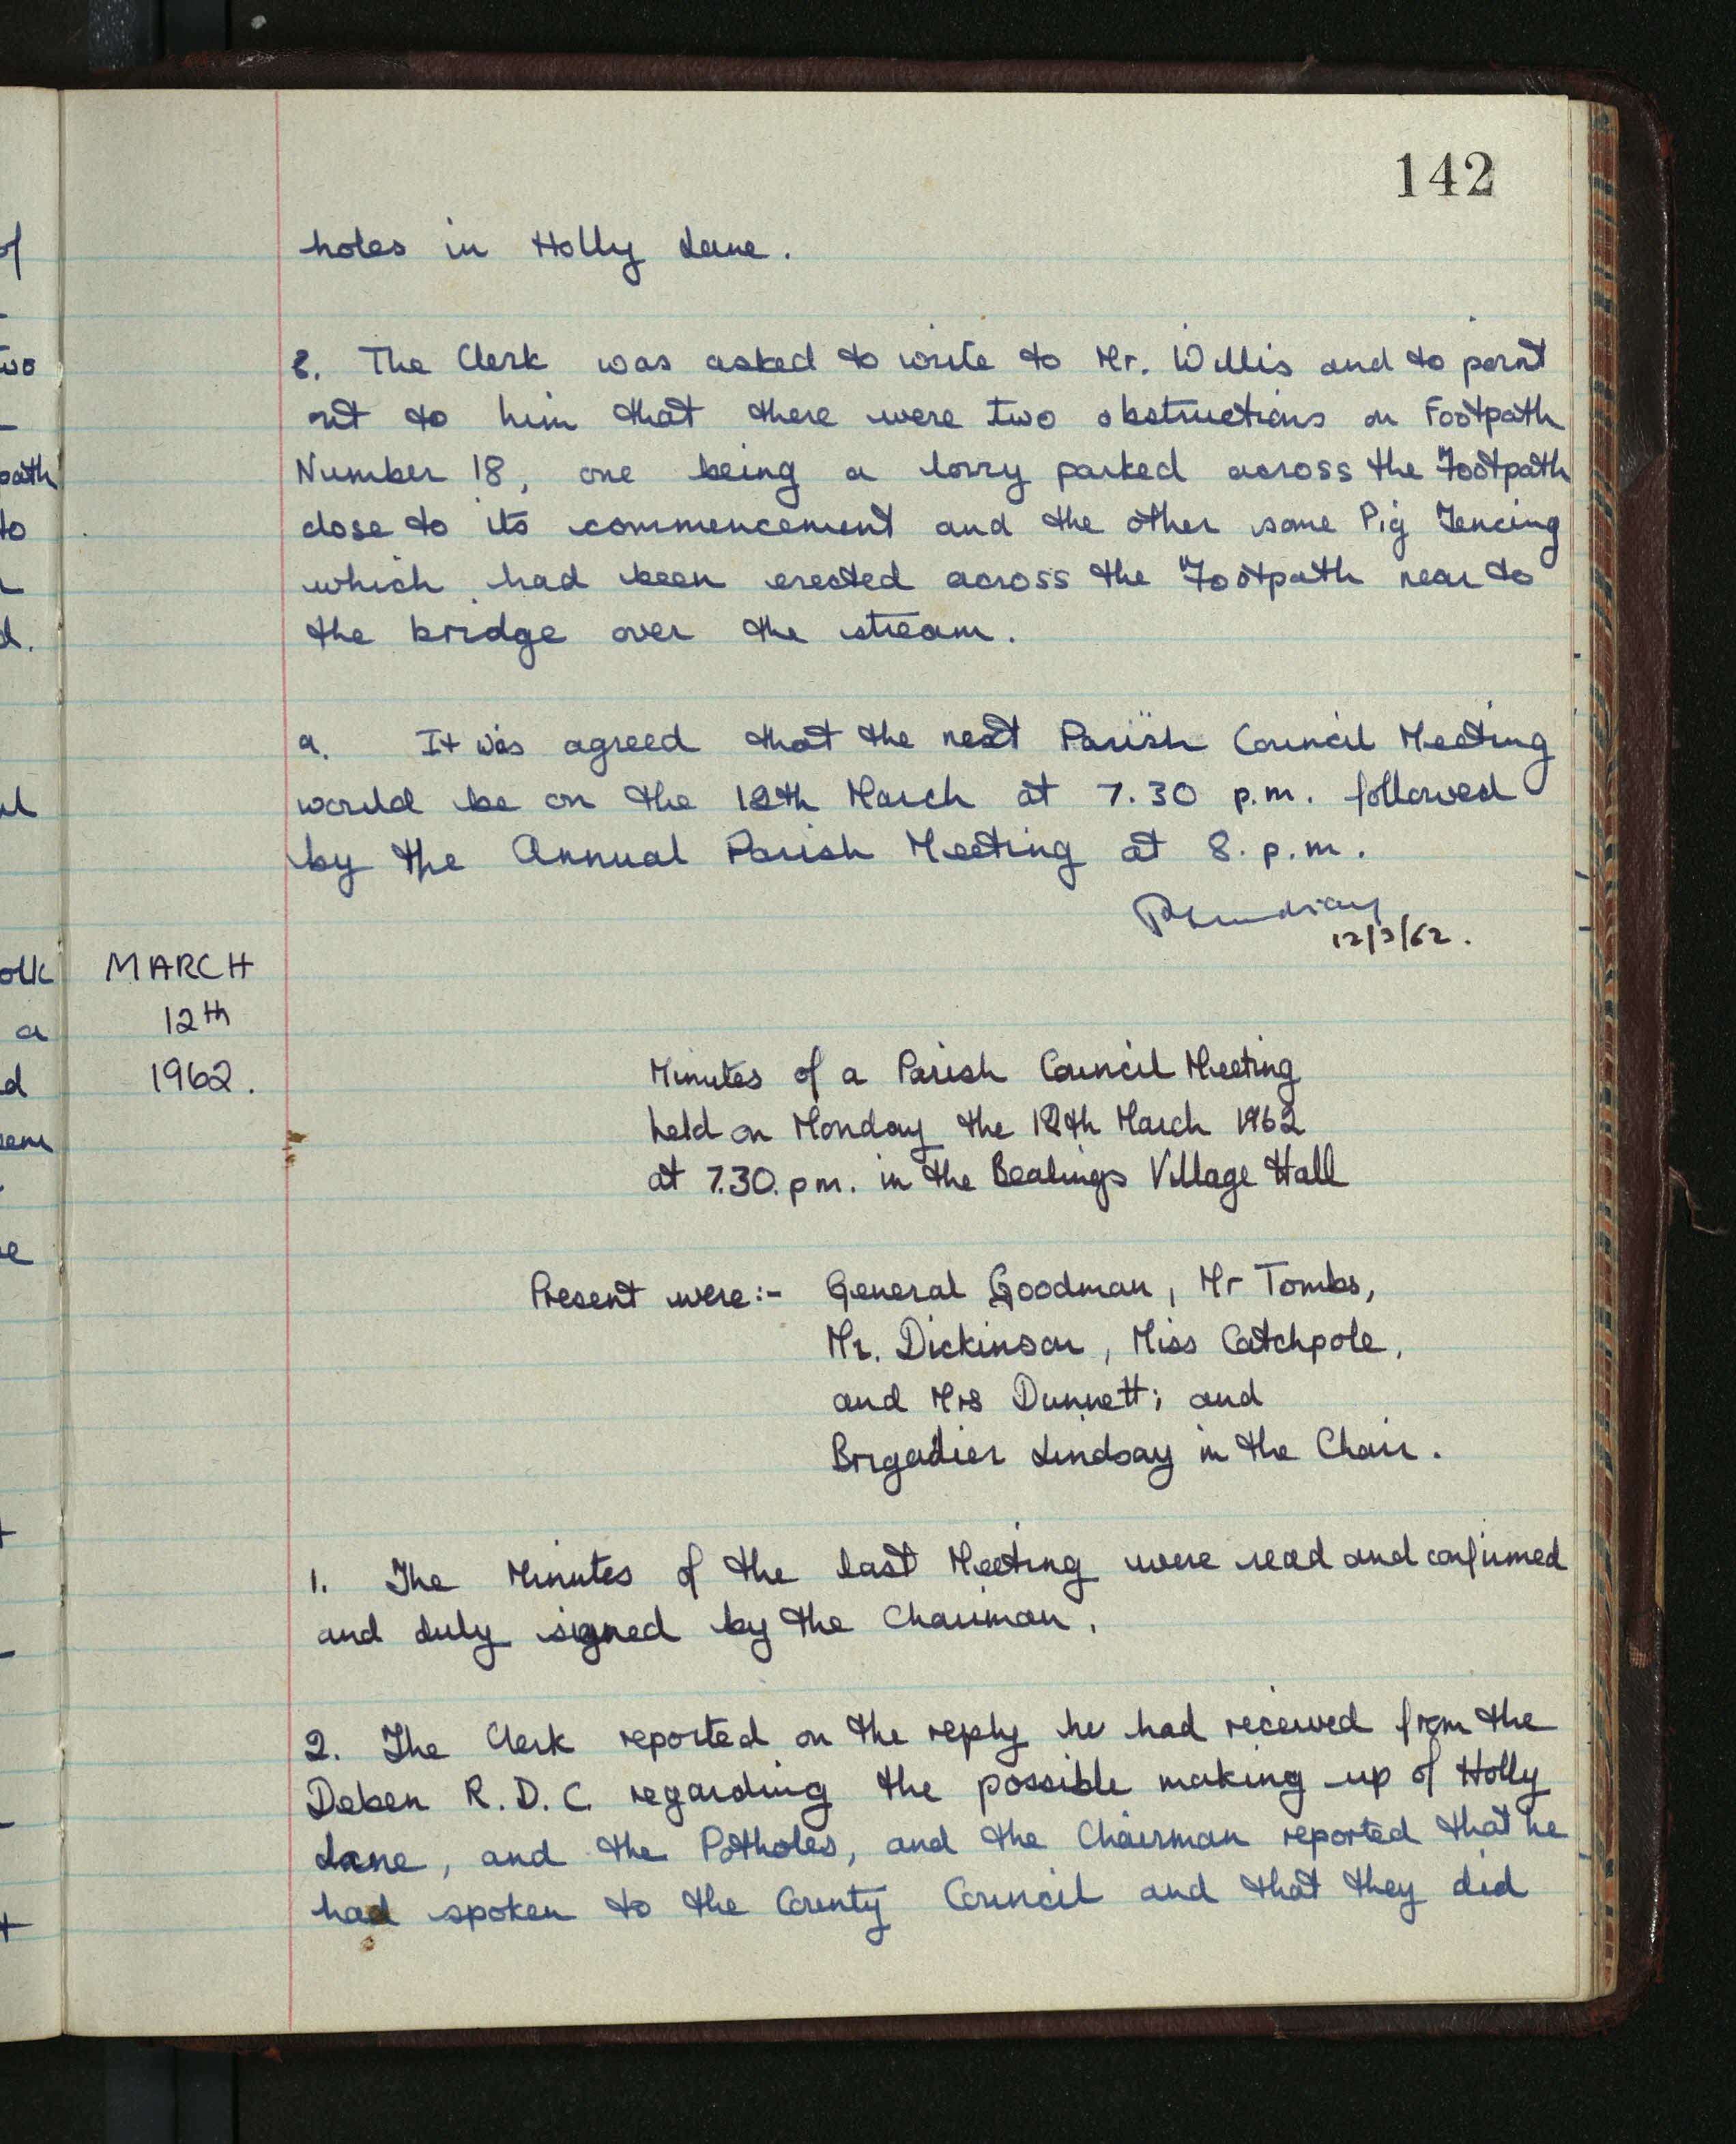 142
holes in Holly Lane.
8. The Clerk was asked to write to Mr. Willis and to point
out to him that there were two obstructions on Footpath
Number 18, one being a lorry parked across the Footpath
close to its commencement and the other some Pig Fencing
which had been erected across the Footpath near to
the bridge over the stream.
9. It was agreed that the next Parish Council Meeting
would be on the 12th March at 7.30 p.m. followed
by the Annual Parish Meeting at 8. p.m.
12/3/62.
MARCH
12th
1962.
Minutes of a Parish Council Meeting
held on Monday the 12th March 1962
at 7.30. pm. in the Bealings Village Hall
Present were:- General Goodman, Mr Tombs,
Mr. Dickinson, Miss Catchpole,
and Mrs Dunnett; and
Brigadier Lindsay in the Chair.
1. The Minutes of the last Meeting were read and confirmed
and duly signed by the Chairman.
2. The Clerk reported on the reply he had received from the
Deben R.D.C. regarding the possible making up of Holly
Lane, and the Potholes, and the Chairman reported that he
had spoken to the County Council and that they did